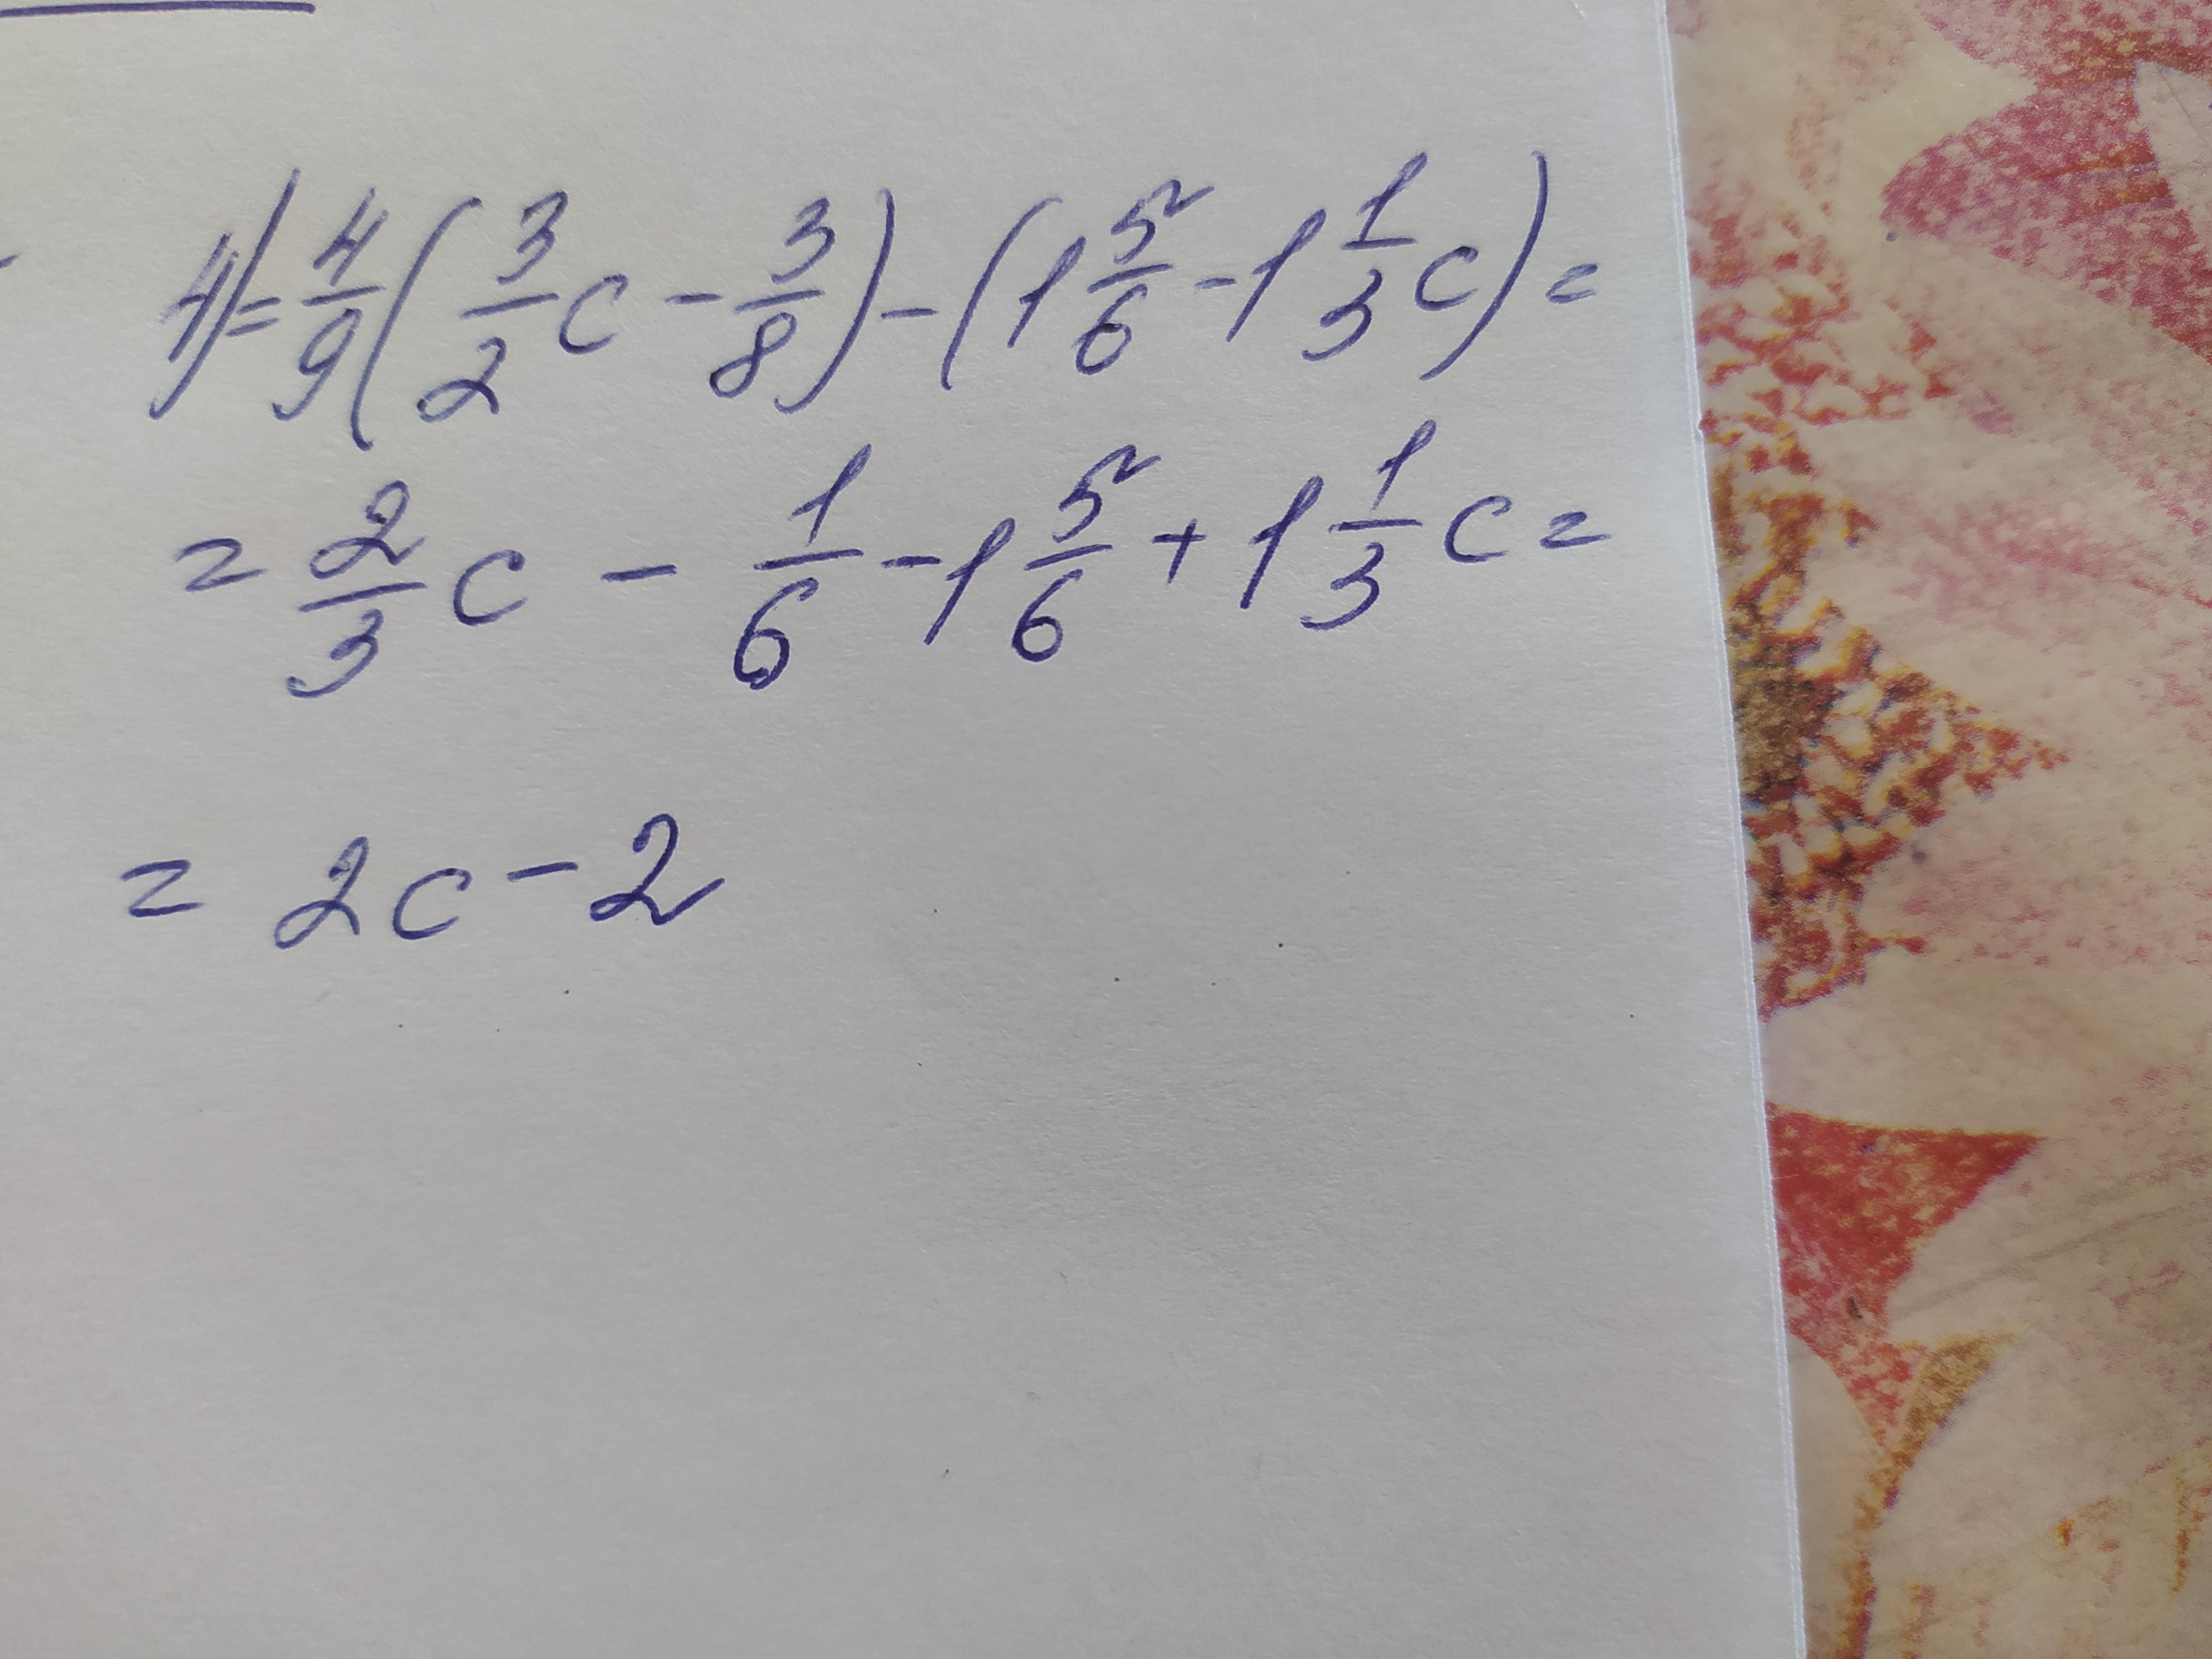 4)= 4/9 (3/2 c - 3/8) - (1 5/6 - 1 1/3 c) =
= 2/3 c - 1/6 - 1 5/6 + 1 1/3 c =
= 2c - 2